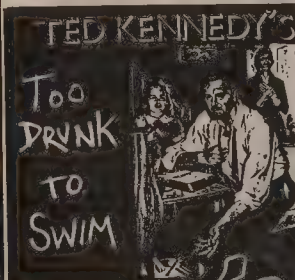 TED KENNEDY'S
TOO
DRUNK
TO
SWIM